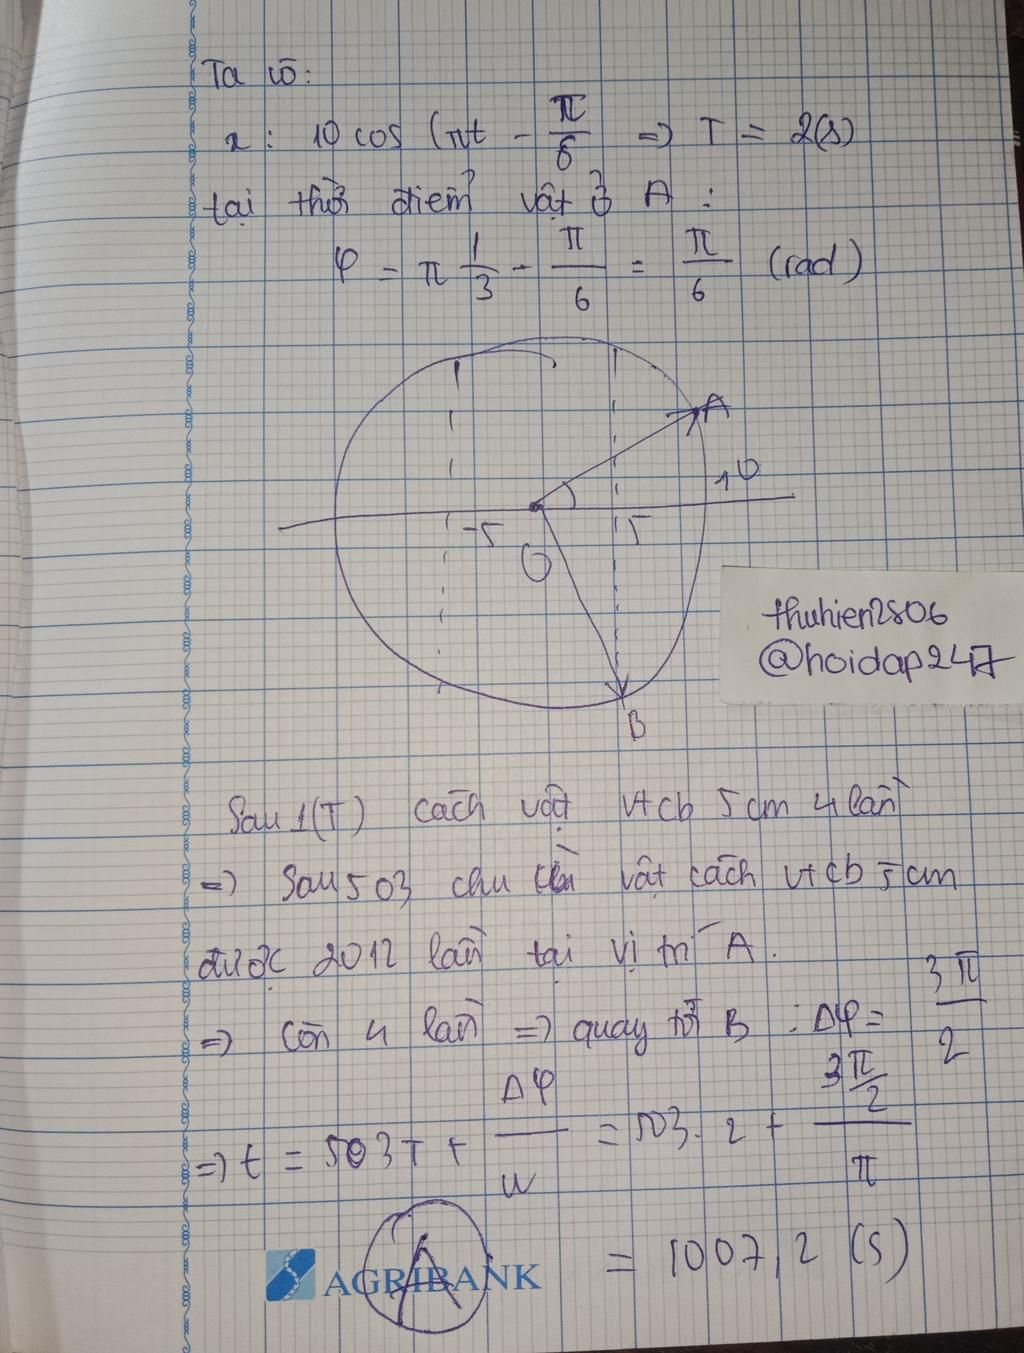 Ta có:
x: 10 cos (πt - π/6 => T = 2(s)
tại thời điểm vật ở A :
φ = π 1/3 - π/6 = π/6 (rad)
A
10
-5
5
O
B
thuhien2806
@hoidap247
Sau 1(T) cách vật vtcb 5 cm 4 lần
=> Sau 503 chu kì vật cách vtcb 5 cm
được 2012 lần tại vị trí A.
=> Còn 4 lần => quay tới B : Δφ = 3π/2
=> t = 503T + Δφ/w = 503. 2 + 3π/2/π
= 1007,2 (s)
A
AGRIBANK